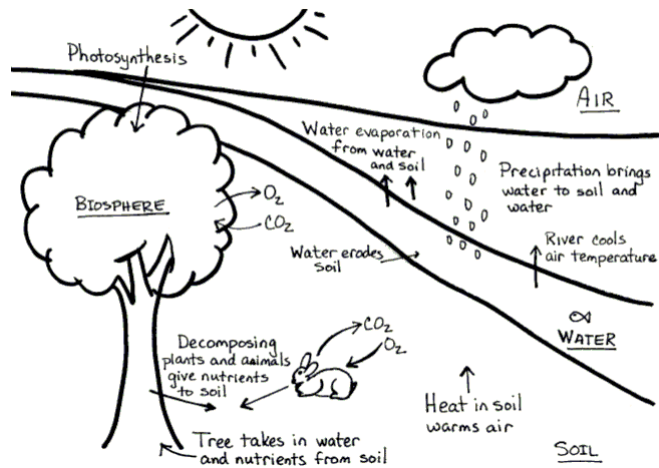 Photosynthesis
AIR
Water evaporation
from water
and soil
Precipitation brings
water to soil and
water
BIOSPHERE
O₂
CO₂
Water erodes
soil
River cools
air temperature
WATER
Decomposing
plants and animals
give nutrients
to soil
CO₂
O₂
Heat in soil
warms air
Tree takes in water
and nutrients from soil
SOIL